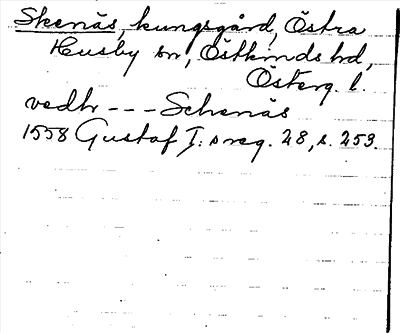 Skenäs, kungsgård, Östra
Husby sn, Östkinds hd,
Österg. l.
vedh --- Schenäs
1558 Gustaf I:s reg. 28, s. 253.